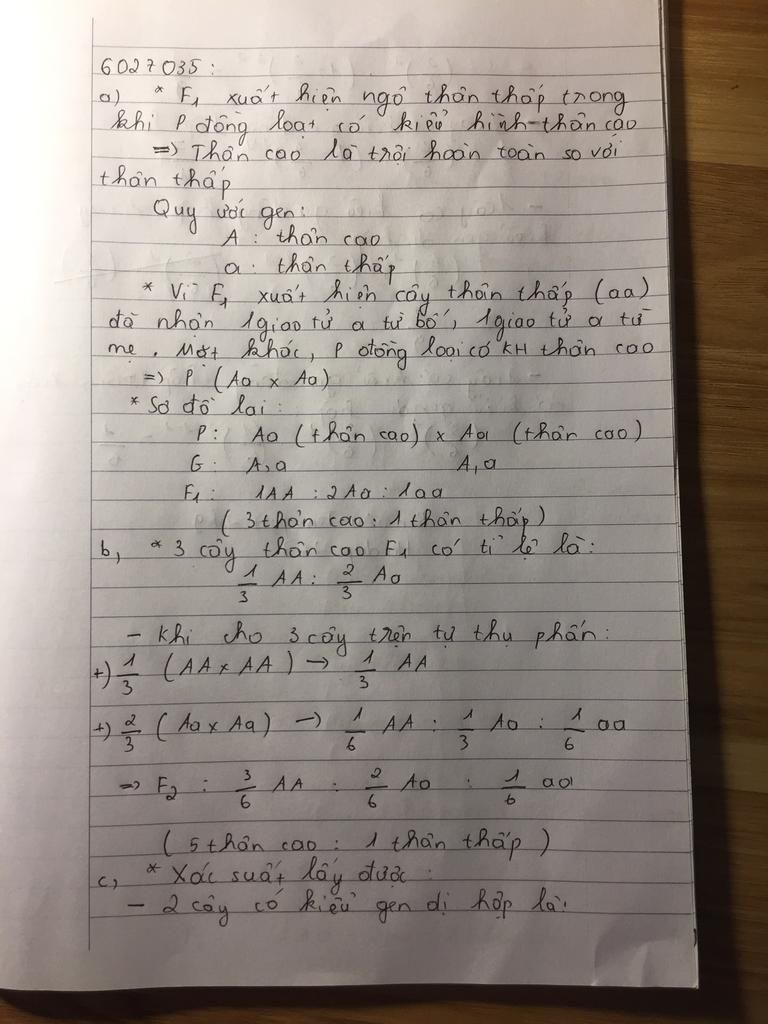 6027035:
a) * F₁ xuất hiện ngô thân thấp trong
khi P đồng loạt có kiểu hình thân cao
=> Thân cao là trội hoàn toàn so với
thân thấp
Quy ước gen:
A: thân cao
a: thân thấp
* Vì F₁ xuất hiện cây thân thấp (aa)
đã nhận 1 giao tử a từ bố, 1 giao tử a từ
mẹ. Mặt khác, P đồng loại có KH thân cao
=> P (Aa x Aa)
* Sơ đồ lai:
P: Aa (thân cao) x Aa (thân cao)
G: A,a A,a
F₁: 1AA : 2Aa : 1aa
(3 thân cao : 1 thân thấp)
b, * 3 cây thân cao F₁ có tỉ lệ là:
1/3 AA : 2/3 Aa
- Khi cho 3 cây trên tự thụ phấn:
+) 1/3 (AA x AA) -> 1/3 AA
+) 2/3 (Aa x Aa) -> 1/6 AA : 1/3 Aa : 1/6 aa
=> F₂ : 3/6 AA : 2/6 Aa : 1/6 aa
(5 thân cao : 1 thân thấp)
c, * Xác suất lấy được:
- 2 cây có kiểu gen dị hợp là: